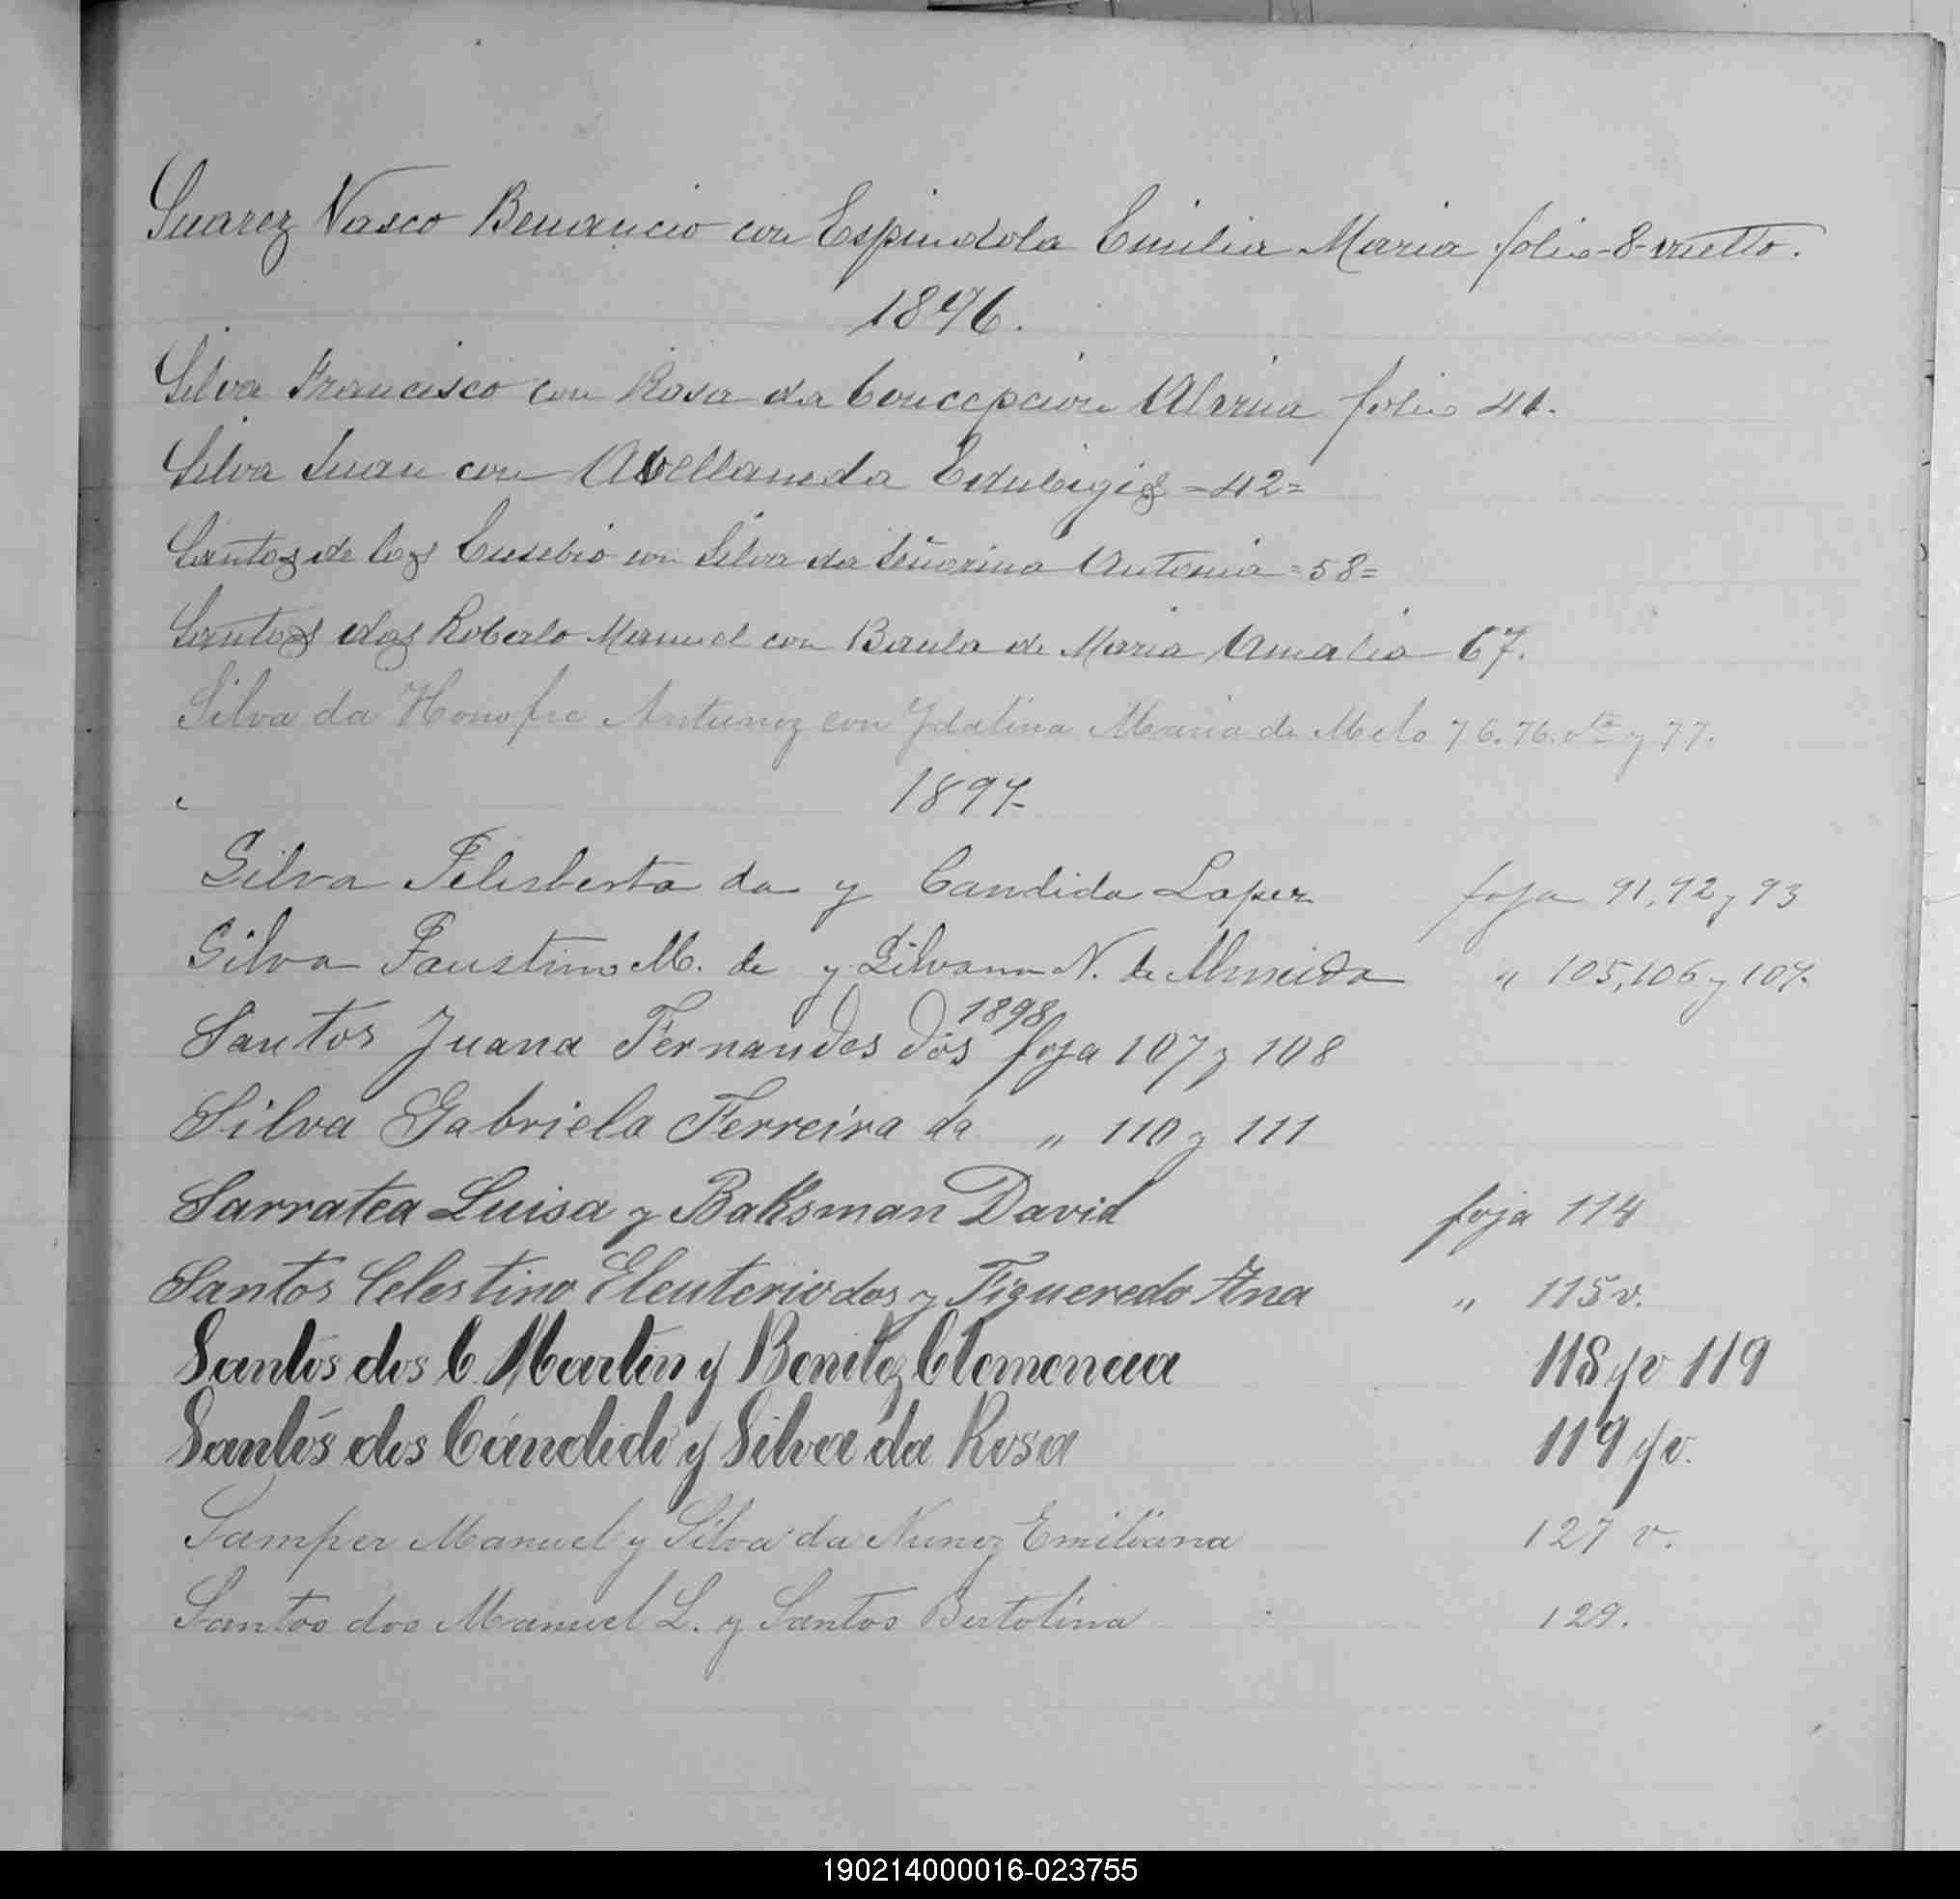 Suarez Vasco Benancio con Espindola Emilia Maria folio-8-vuelto.
1896.
Silva Francisco con Rosa da Concepcion Maria folio 41.
Silva Juan con Abellaneda Edubigis =42=
Santos de los Eusebio con Silva da Señorina Antonia =58=
Santos dos Roberto Manuel con Baula de Maria Amalia 67.
Silva da Honofre Antunez con Ydalina Maria de Melo 76. 76. vta y 77.
1897-
Silva Felisberta da y Candida Lopez foja 91, 92 y 93
Silva Faustino M. de y Silvana N. de Almeida " 105, 106 y 107.
1898
Santos Juana Fernandes dos foja 107 y 108
Silva Gabriela Ferreira da " 110 y 111
Sarratea Luisa y Baksman David foja 114
Santos Celestino Eleuterio dos y Figueredo Ana " 115 v.
Santos dos C. Martin y Benitez Clemencia 118 y v 119
Santos dos Cándido y Silva da Rosa 119 y v.
Samper Manuel y Silva da Nunez Emiliana 127 v.
Santos dos Manuel L. y Santos Bertolina 129.
190214000016-023755